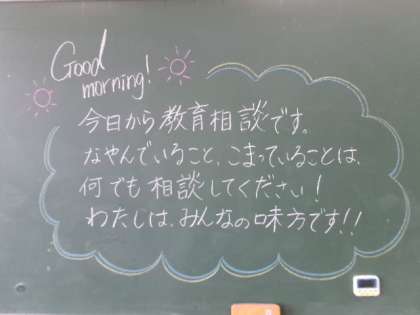 Good
morning!
今日から教育相談です。
なやんでいること、こまっていることは、
何でも相談してください！
わたしは、みんなの味方です!!